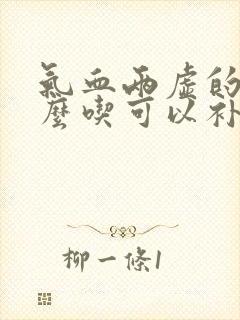 氣血兩虛的
麼喫可以补
柳一條1